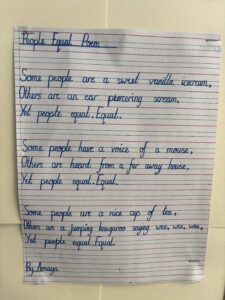 People Equal Poem
Some people are a sweet vanilla icecream,
Others are an ear piercing scream,
Yet people equal. Equal.
Some people have a voice of a mouse,
Others are heard from a far away house,
Yet people equal. Equal.
Some people are a nice cup of tea,
Others are a jumping kangaroo saying wee, wee, wee,
Yet people equal. Equal.
By Amaya